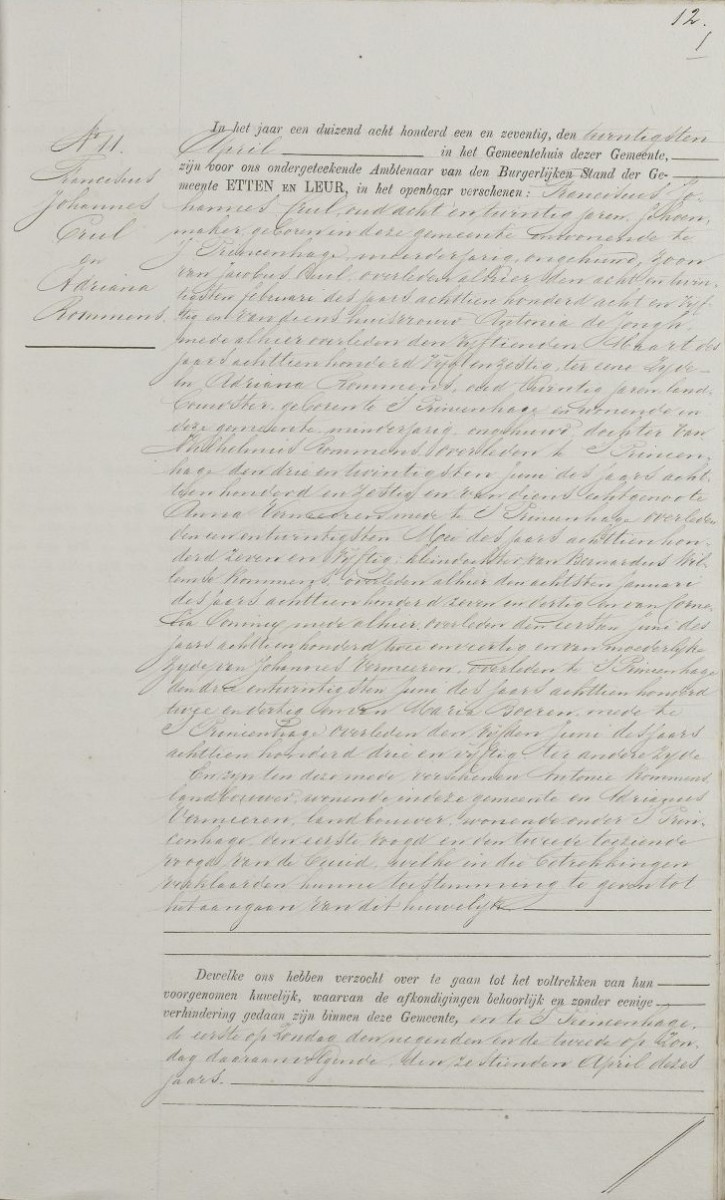 12.
1
No 11.
Francisus
Johannes
Crul
en
Adriana
Rommens.
In het jaar een duizend acht honderd een en zeventig, den twintigsten
April in het Gemeentehuis dezer Gemeente,
zijn voor ons ondergeteekende Ambtenaar van den Burgerlijken Stand der Ge-
meente ETTEN EN LEUR, in het openbaar verschenen: Francisus Jo-
hannes Crul, oud acht en twintig jaren, schoen
maker, geboren in deze gemeente en wonende te
S Princenhage, meerderjarig, ongehuwd, zoon
van Jacobus Crul, overleden alhier den acht en twin
tigsten februari des jaars achttien honderd acht en vijf
tig en van diens huisvrouw Antonia de Jongh,
mede alhier overleden den vijftienden Maart des
jaars achttien honderd vijf en zestig, ter eene zyde
en Adriana Rommens, oud twintig jaren, land-
bouwster, geboren te S Princenhage en wonende in
deze gemeente, minderjarig, ongehuwd, dochter van
Wilhelmus Rommens, overleden te S Princen-
hage den drie en twintigsten Juni des jaars acht-
tien honderd en zestig en van diens echtgenoote
Anna Vermeeren, mede te S Princenhage overleden
den een en twintigsten Mei des jaars achttien hon-
derd zeven en vijftig; kleindochter van Bernardus Wil-
lemse Rommens, overleden alhier den achtsten Januari
des jaars achttienhonderd zeven en dertig en van Corne-
lia mede alhier overleden den eersten Juni des
jaars achttien honderd twee en veertig en van moederlijke
zyde van Johannes Vermeeren, overleden te S Princenhage
den drie en twintigsten Juni des jaars achttien honderd
twee en dertig en van Maria Boeren, mede te
S Princenhage overleden den vijfden Juni des jaars
achttien honderd drie en vijftig, ter andere zyde
En zyn ten deze mede verschenen Antonie Rommens,
landbouwer, wonende in deze gemeente en Adrianus
Vermeeren, landbouwer, wonende onder S Prin-
cenhage, den eerste voogd en den tweede toeziende
voogd van de bruid, welke in die betrekkingen
verklaarden hunne toestemming te geven tot
het aangaan van dit huwelijk
Dewelke ons hebben verzocht over te gaan tot het voltrekken van hun
voorgenomen huwelijk, waarvan de afkondigingen behoorlijk en zonder eenige
verhindering gedaan zijn binnen deze Gemeente, en te S Princenhage,
de eerste op Zondag den negenden en de tweede op Zon-
dag daaraanvolgende, den zestienden April dezes
jaars.